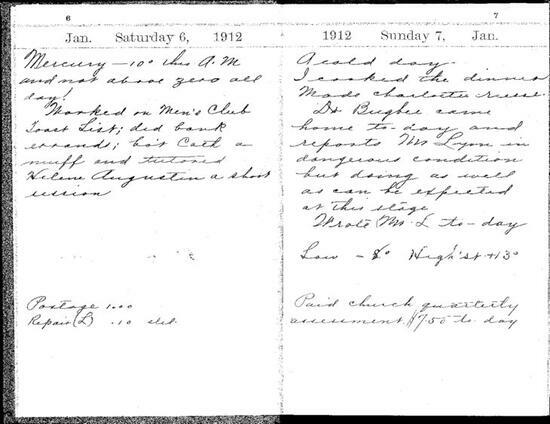 6
Jan. Saturday 6, 1912
Mercury -10° this A.M
and not above zero all
day!
Worked on Men's Club
Toast List; did bank
errands; Cath a
muff and tutored
Helene Augustin a short
session
Postage 1.00
Repair (L) .10
7
1912 Sunday 7, Jan.
A cold day.
I cooked the dinner
Made charlotte russe.
Dr Bugbee came
home to-day and
reports Mr Lyon in
dangerous condition
but doing as well
as can be expected
at this stage
Wrote Mr. L to-day
Low -8° High'st +13°
Paid church quarterly
assessment $7.50 to-day